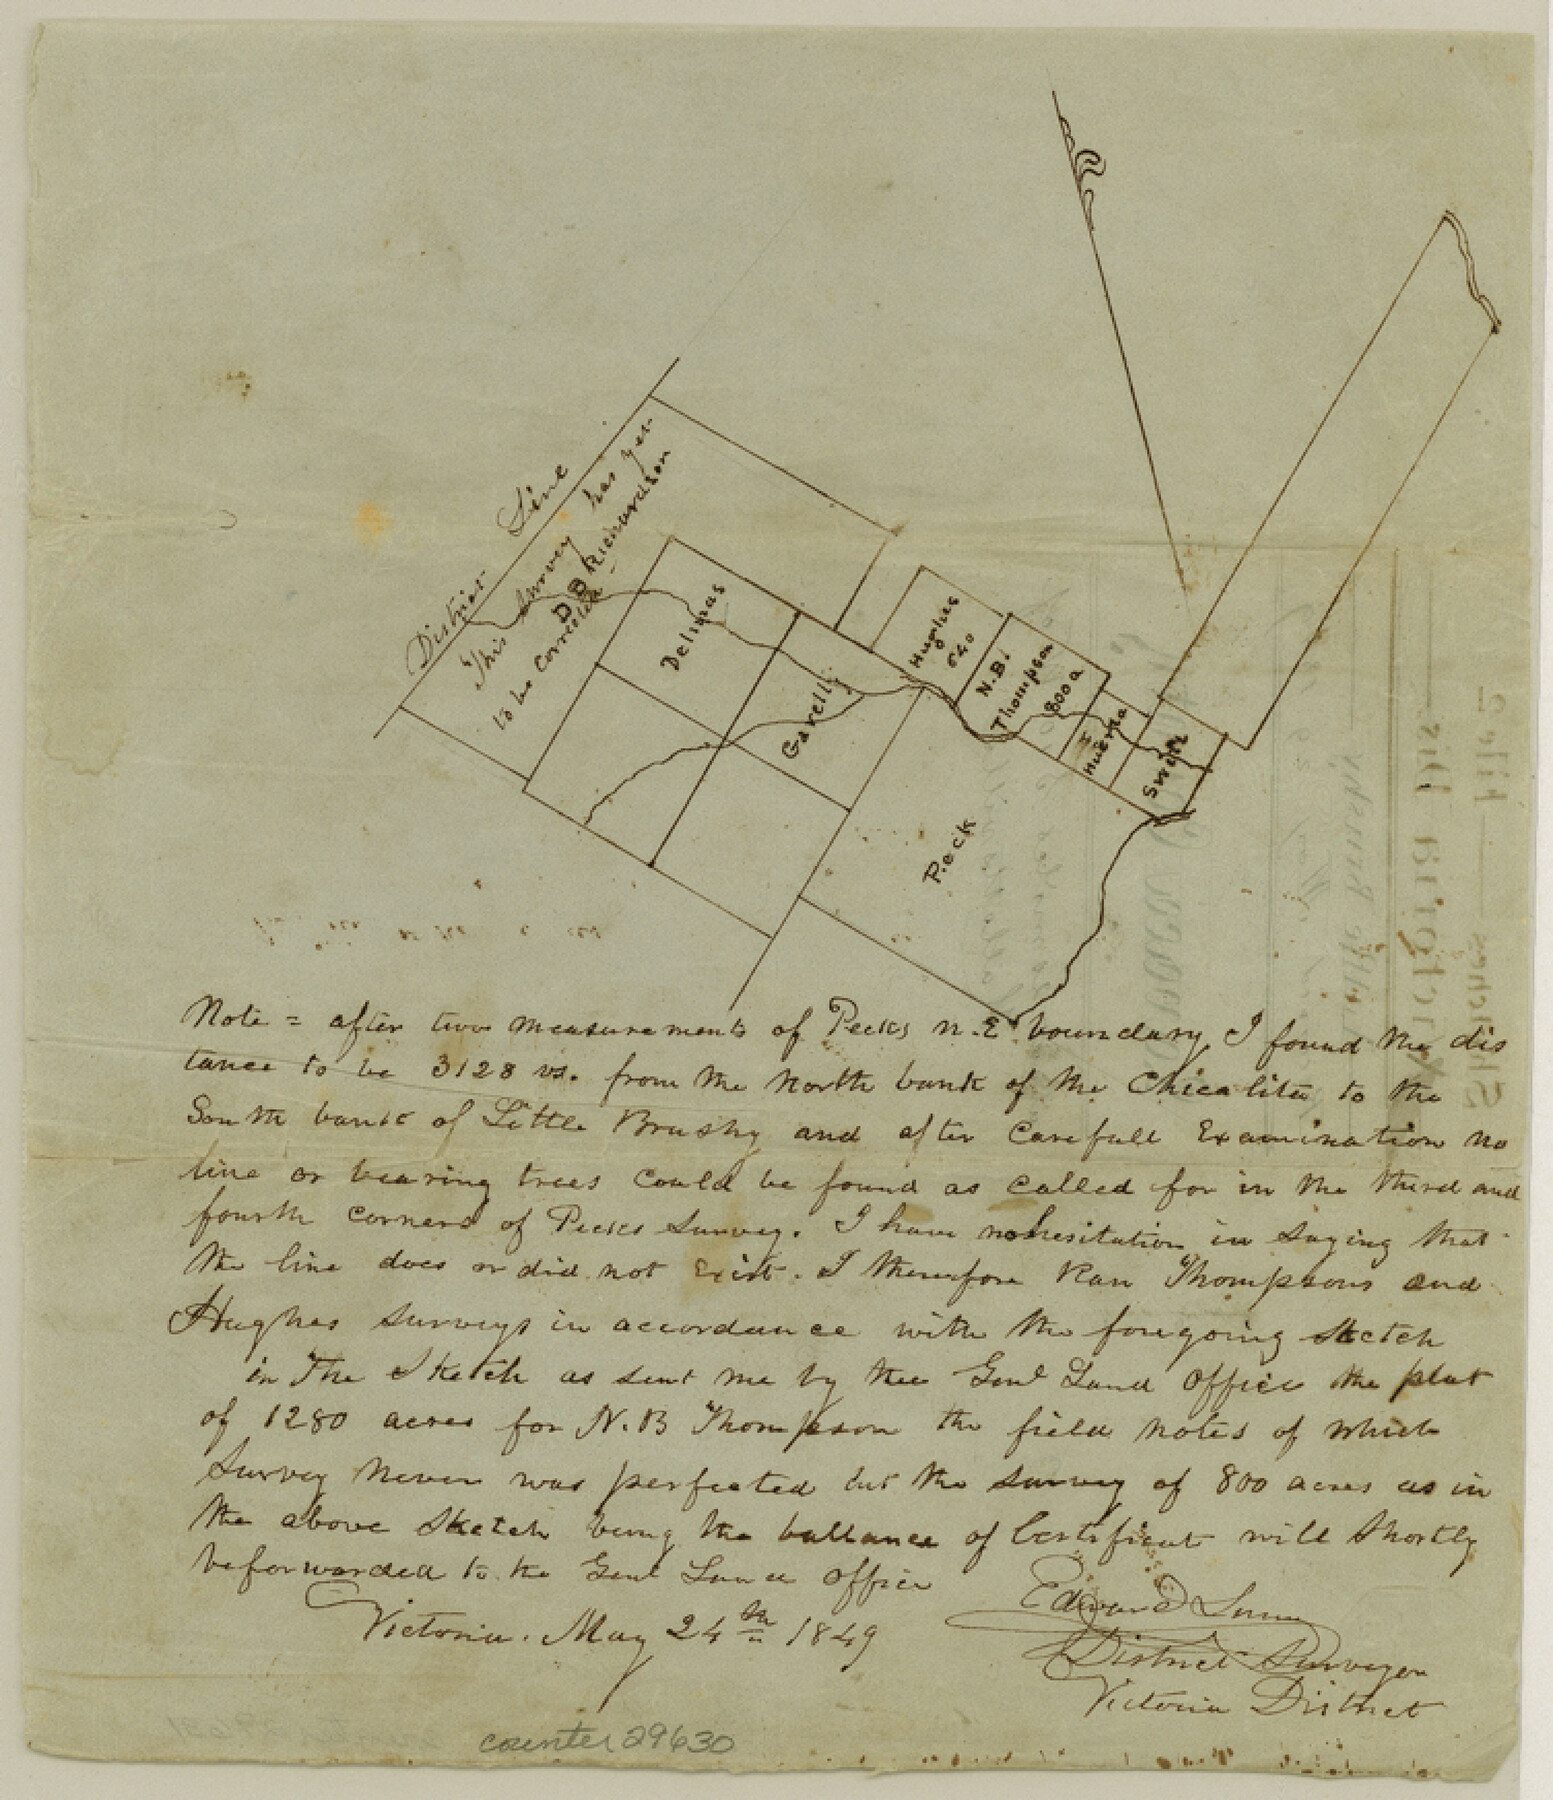 District Line
This Survey has yet
to be corrected
D B Richardson
Delimas
Garelli
Hughes
640
N.B.
Thompson
800 a
I
Huerta
Swift
Peck
Note = after two measurements of Pecks N.E boundary I found the dis
tance to be 3128 vs. from the North bank of the Chicalite to the
South bank of Little Brushy and after Carefull Examination no
line or bearing trees could be found as called for in the third and
fourth corners of Pecks Survey. I have no hesitation in saying that
the line does or did not Exist. I therefore Ran Thompsons and
Hughes surveys in accordance with the foregoing Sketch
in The Sketch as sent me by thee Genl Land Office the plat
of 1280 acres for N.B Thompson the field notes of which
Survey Never was perfected but the survey of 800 acres as in
the above Sketch being the ballance of Certificat will Shortly
be forwarded to the Genl Land Office
Victoria. May 24th 1849
Edward
District Surveyor
Victoria District
counter 29630